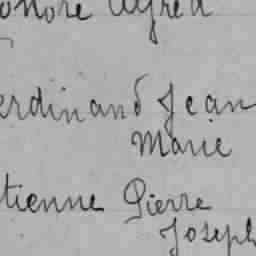 onoré Alfred
erdinand Jean
Marie
tienne Pierre
Joseph